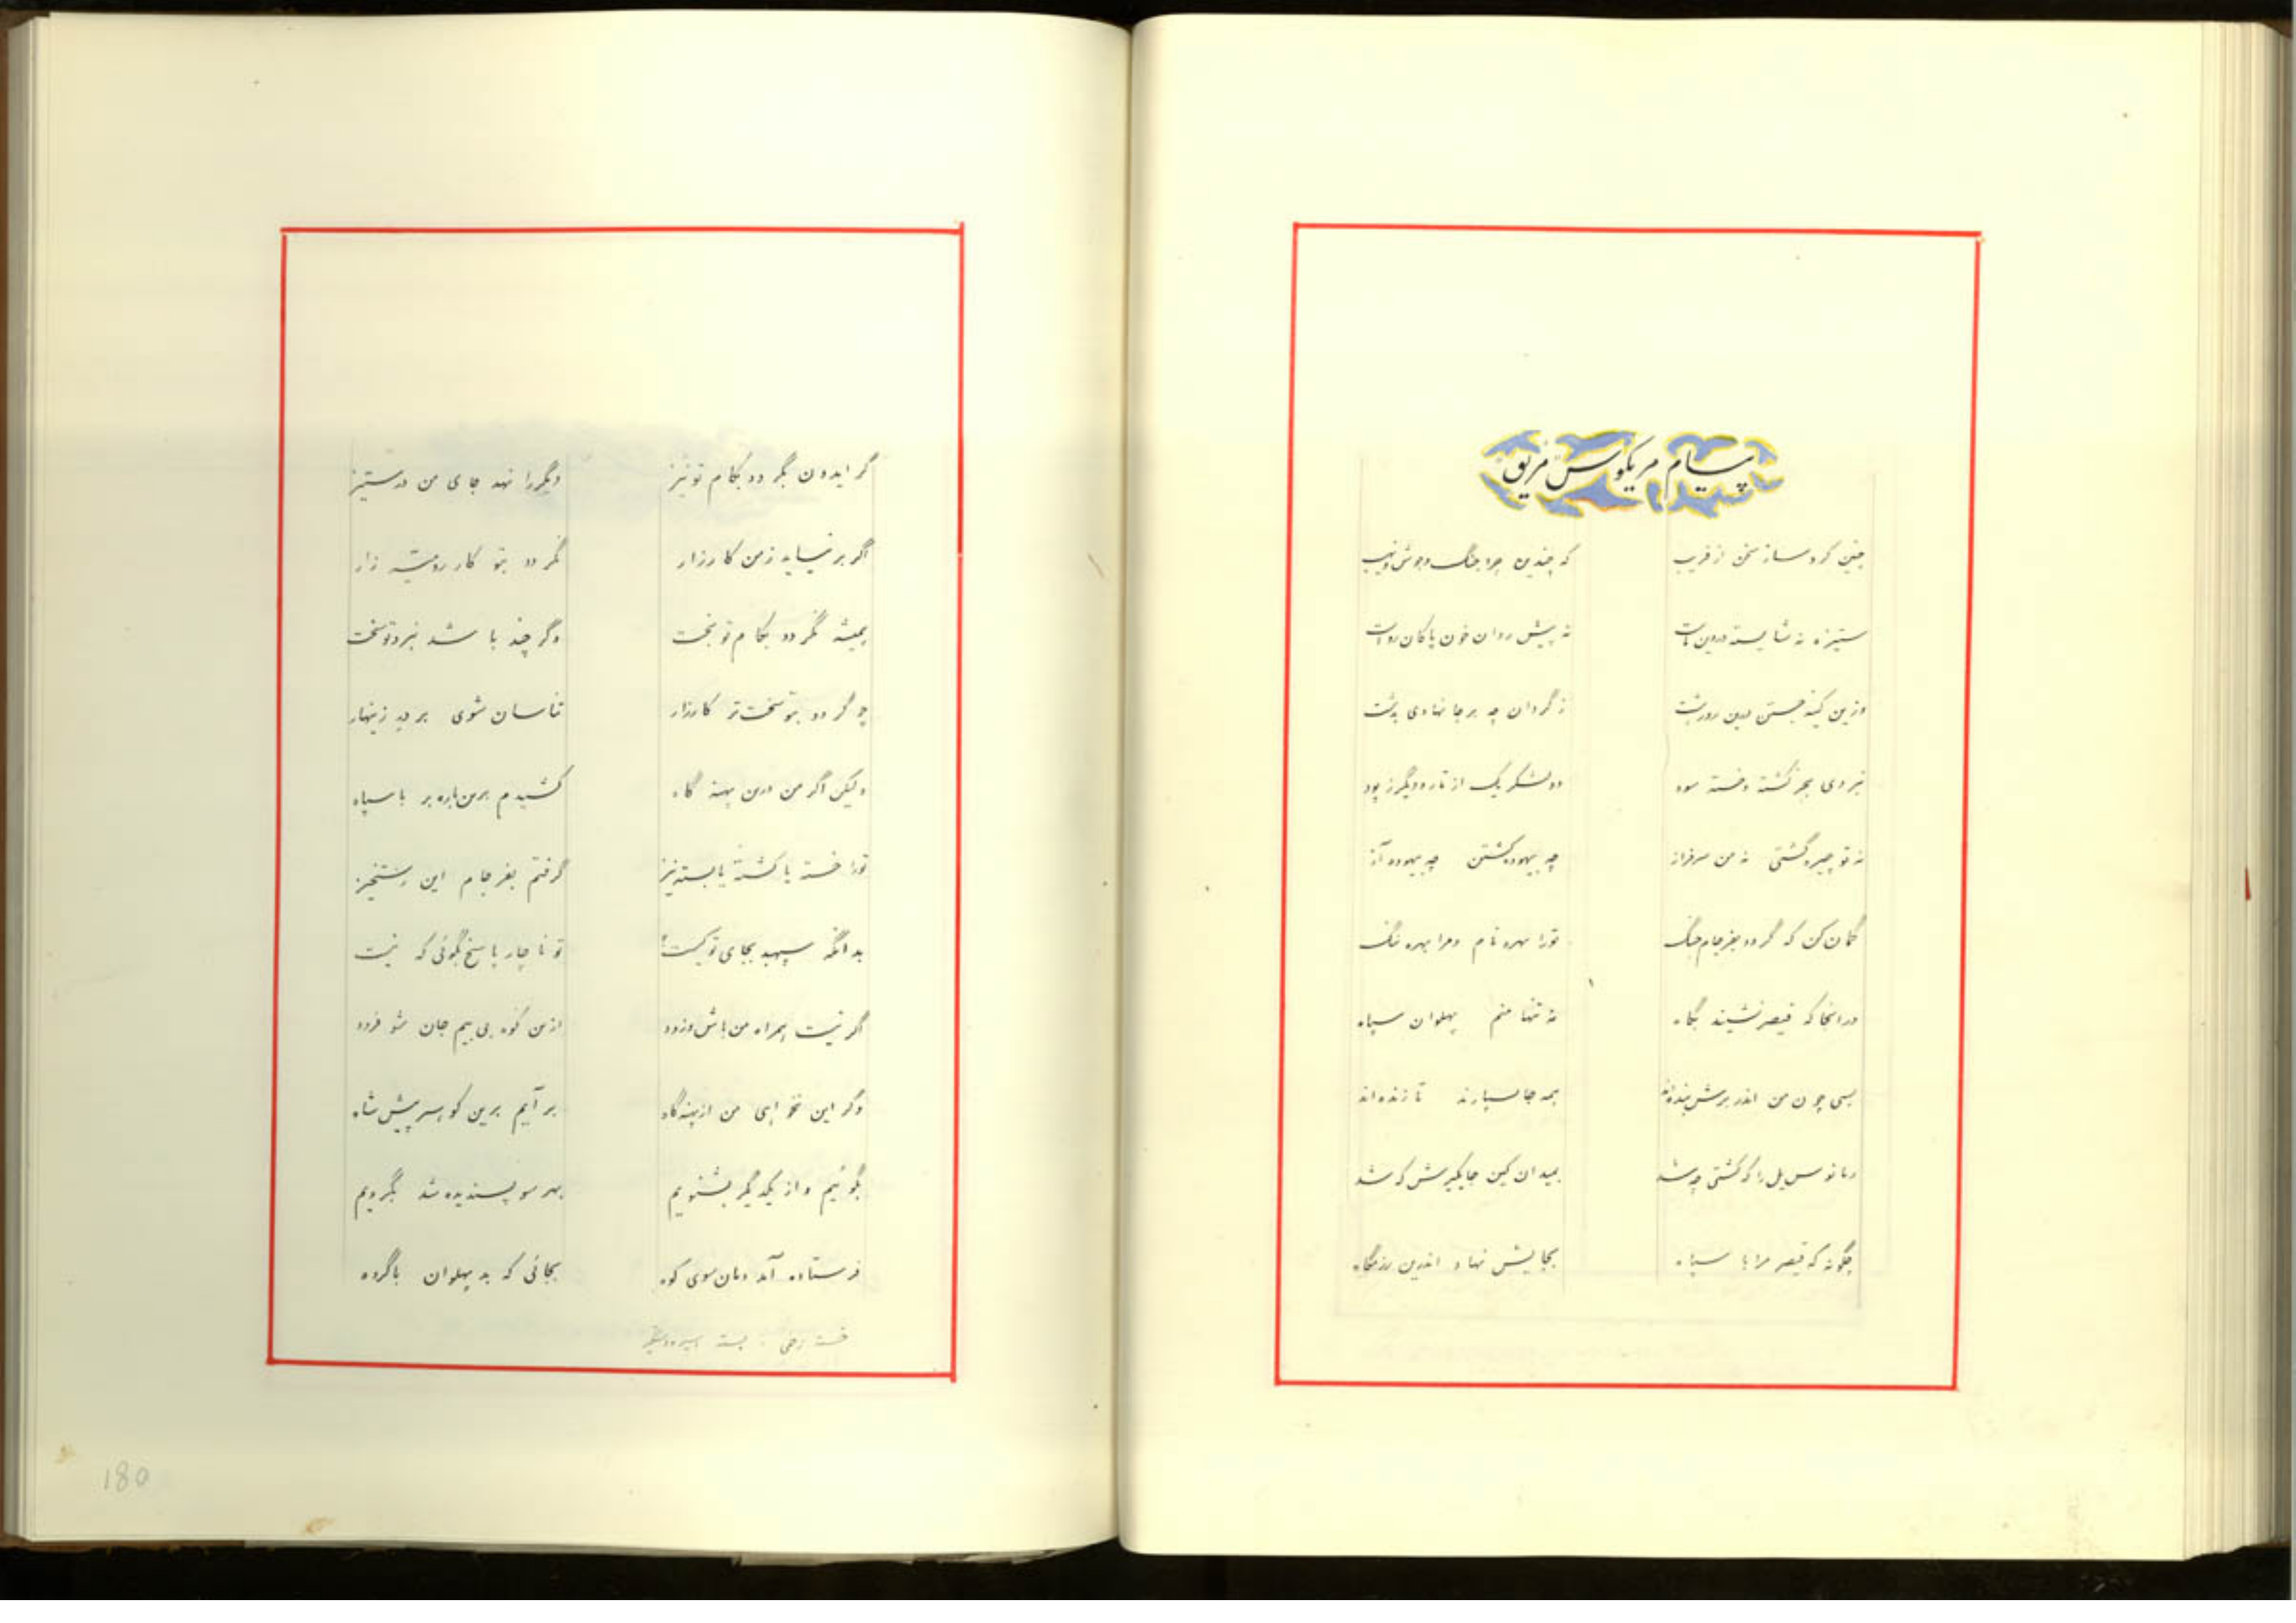 پیام مریکوس فریق
چنین کرد ساز سخن از فریب که چندین چرا جنگ و جوش و نهیب
ستیزه نه شایسته درین ماست نه پیش روان خون پاکان رواست
وزین کینه جستن درین رود رشت ز گردان چه بر جا نهادی بدشت
نبردی بجز کشته و خسته سود دو لشکر یک از تار و دیگر ز پود
نه تو چیره گشتی نه من سرفراز چه بیهوده کشتن چه بیهوده آز
گمان کن که گردد بفرجام جنگ تورا بهره نام و مرا بهره ننگ
در آنجا که قیصر نشیند بگاه نه تنها منم پهلوان سپاه
بسی چون من اندر برش بنده‌اند همه جانسپارند تا زنده‌اند
رمانوس یل را که کشتی چه شد بمیدان کین جایگیرش که شد
چگونه که قیصر مرا با سپاه بجایش نهاد اندرین رزمگاه
گر ایدون بگردد بکام تو نیز دیگر را نهد جای من در ستیز
اگر بر نیاید ز من کارزار نگردد بتو کار رومیه زار
همیشه نگردد بکام تو بخت وگر چند باشد نبرد تو سخت
چو گردد بتو سخت‌تر کارزار تناسان شوی بر در زینهار
ولیکن اگر من درین پهنه گاه کشیدم برین باره بر با سپاه
تورا خسته یا کشته یا بسته نیز گرفتم بفرجام این رستخیز
بدانگه سپهبد بجای تو کیست؟ تو ناچار پاسخ بگوئی که نیست
اگر نیست همراه من باش و زود ازین کوه بی بیم جان شو فرود
وگر این نخواهی من از پهنه گاه بر آیم برین کوهسر پیش شاه
بگوئیم و از یکدیگر بشنویم بهر سو پسندیده شد بگرویم
فرستاده آمد دمان سوی کوه بجائی که بد پهلوان باگروه
خسته زخمی . بسته اسیر و دستگیر
180